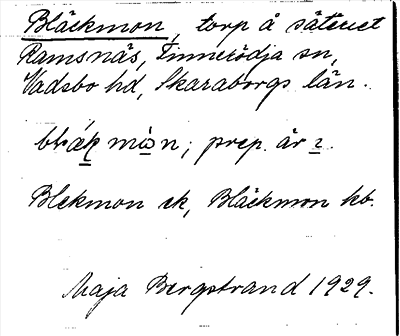 Bläckmon, torp å säteriet
Ramsnäs, Finnerödja sn,
Vadsbo hd, Skaraborgs län.
prep. är
Blekmon ek, Bläckmon kb.
Maja Bergstrand 1929.